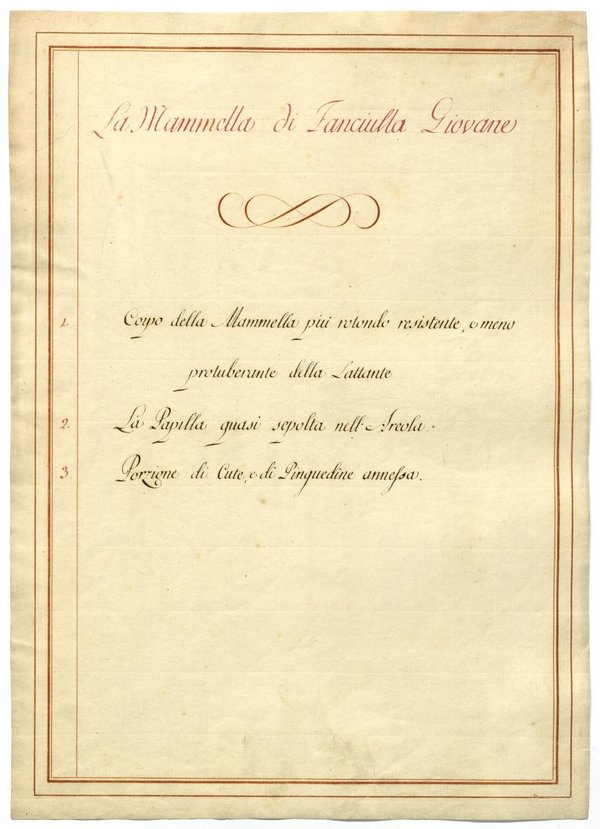 La Mammella di Fanciulla Giovane
1. Corpo della Mammella più rotondo resistente, e meno
protuberante della Lattante
2. La Papilla quasi sepolta nell'Areola.
3. Porzione di Cute, e di Pinguedine annessa.